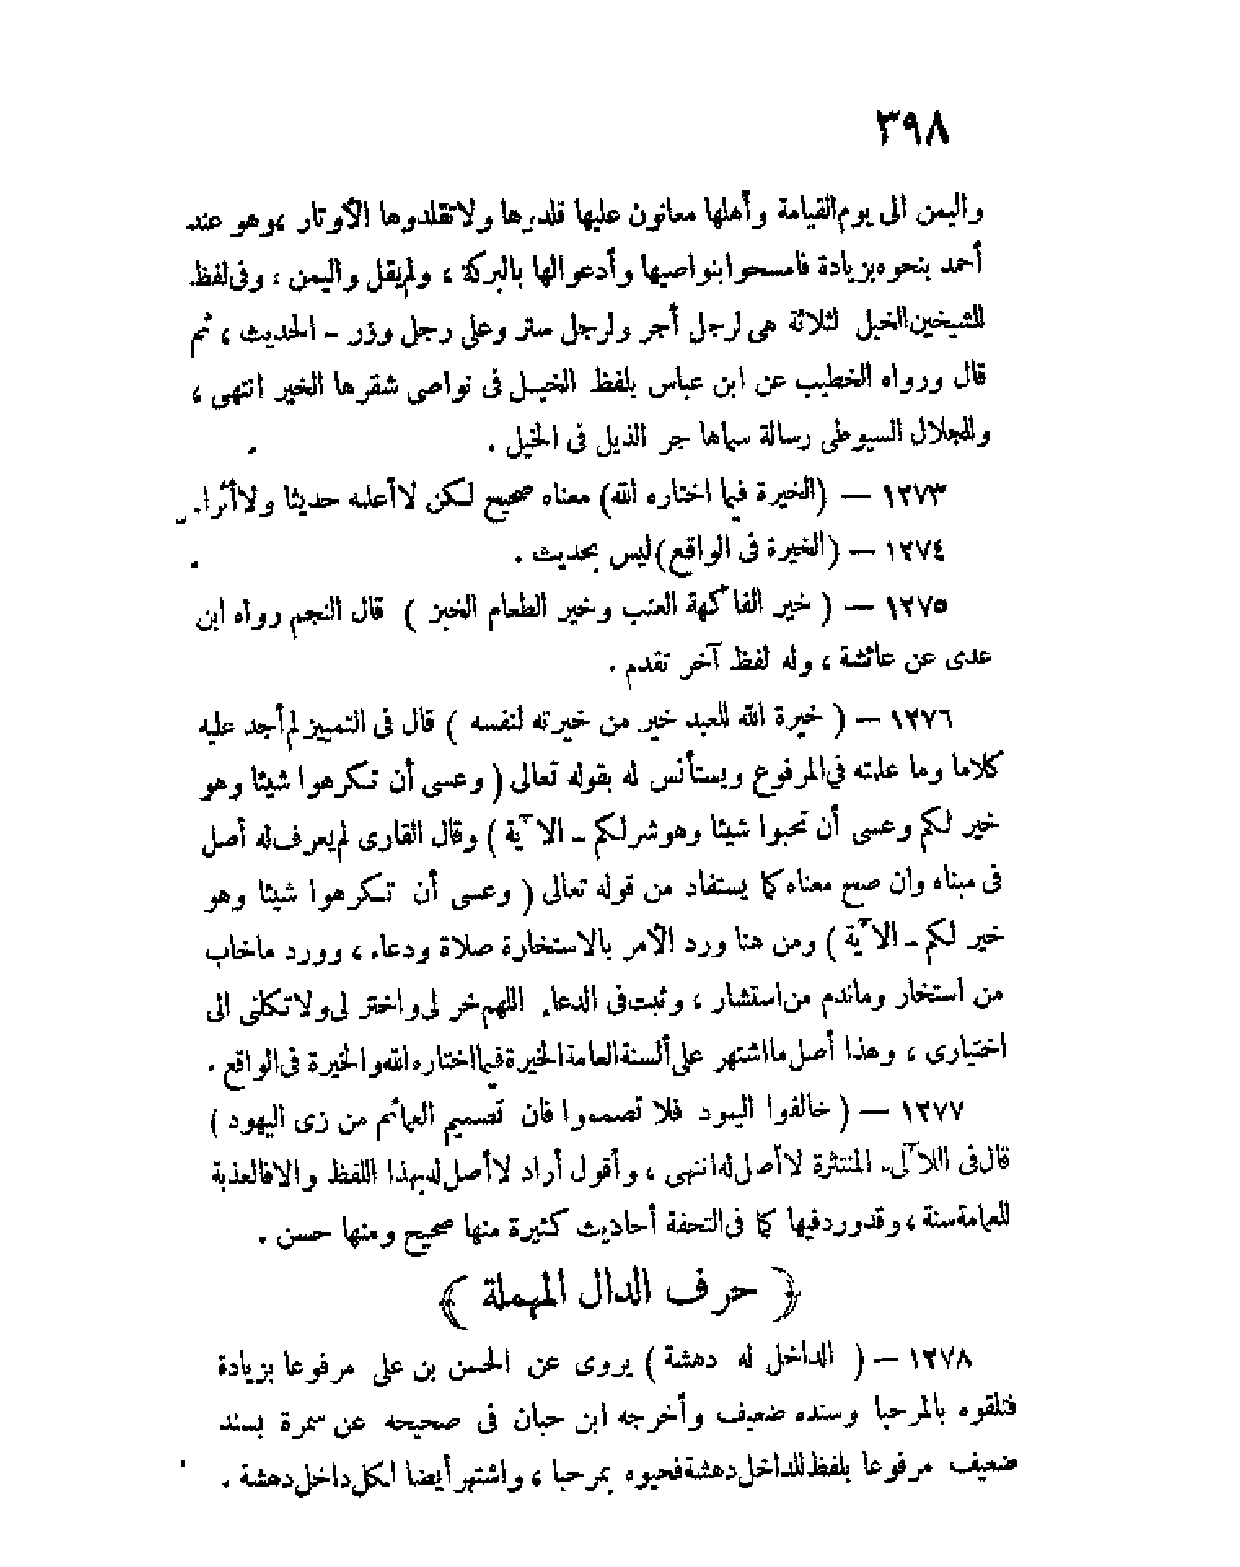 ٣٩٨
واليمن الى يوم القيامة وأهلها معانون عليها قلدوها ولا تقلدوها الأوتار ، وهو عند
أحمد بنحوه بزيادة فامسحوا بنواصيها وأدعوا لها بالبركة ، ولم يقل واليمن ، وفى لفظ
للشيخين الخيل لثلاثة هى لرجل أجر ولرجل ستر وعلى رجل وزر - الحديث ، ثم
قال ورواه الخطيب عن ابن عباس بلفظ الخيل فى نواصى شقرها الخير انتهى ،
وللجلال السيوطى رسالة سماها جر الذيل فى الخيل .
١٢٧٣ - (الخيرة فيما اختاره الله) معناه صحيح لكن لا أعلمه حديثا ولا أثرا .
١٢٧٤ - (الخيرة فى الواقع) ليس بحديث .
١٢٧٥ - ( خير الفاكهة العنب وخير الطعام الخبز ) قال النجم رواه ابن
عدى عن عائشة ، وله لفظ آخر تقدم .
١٢٧٦ - ( خيرة الله للعبد خير من خيرته لنفسه ) قال فى التمييز لم أجد عليه
كلاما وما علمته في المرفوع ويستأنس له بقوله تعالى ( وعسى أن تكرهوا شيئا وهو
خير لكم وعسى أن تحبوا شيئا وهو شر لكم - الآية ) وقال القارى لم يعرف له أصل
فى مبناه وان صح معناه كما يستفاد من قوله تعالى ( وعسى أن تكرهوا شيئا وهو
خير لكم - الآية ) ومن هنا ورد الأمر بالاستخارة صلاة ودعاء ، وورد ما خاب
من استخار وما ندم من استشار ، وثبت فى الدعاء اللهم خر لى واختر لى ولا تكلنى الى
اختيارى ، وهذا أصل ما اشتهر على ألسنة العامة الخيرة فيما اختاره الله والخيرة فى الواقع .
١٢٧٧ - ( خالفوا اليهود فلا تصمموا فان تصميم العمائم من زى اليهود )
قال فى اللآلىء المنتثرة لا أصل له انتهى ، وأقول أراد لا أصل له بهذا اللفظ والا فالعذبة
للعمامة سنة ، وقد ورد فيها كما فى التحفة أحاديث كثيرة منها صحيح ومنها حسن .
﴿ حرف الدال المهملة ﴾
١٢٧٨ - ( الداخل له دهشة ) يروى عن الحسن بن على مرفوعا بزيادة
فتلقوه بالمرحبا وسنده ضعيف وأخرجه ابن حبان فى صحيحه عن سمرة بسند
ضعيف مرفوعا بلفظ للداخل دهشة فحيوه بمرحبا ، واشتهر أيضا لكل داخل دهشة .